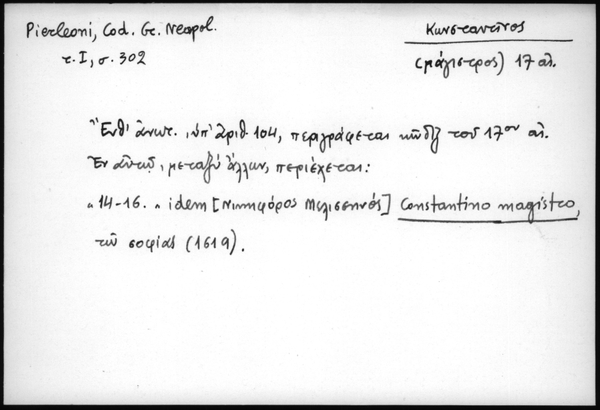 Pierleoni, Cod. Gr. Neapol.
τ. I, σ. 302
Κωνσταντῖνος
(μάγιστρος) 17 αἰ.
Ἔνθ' ἀνωτ., ὑπ' ἀριθ. 104, περιγράφεται κῶδιξ τοῦ 17ου αἰ.
Ἐν αὐτῷ, μεταξὺ ἄλλων, περιέχεται:
"14-16. " idem [Νικηφόρος Μελισσηνός] Constantino magistro,
τῶ σοφίας (1619).